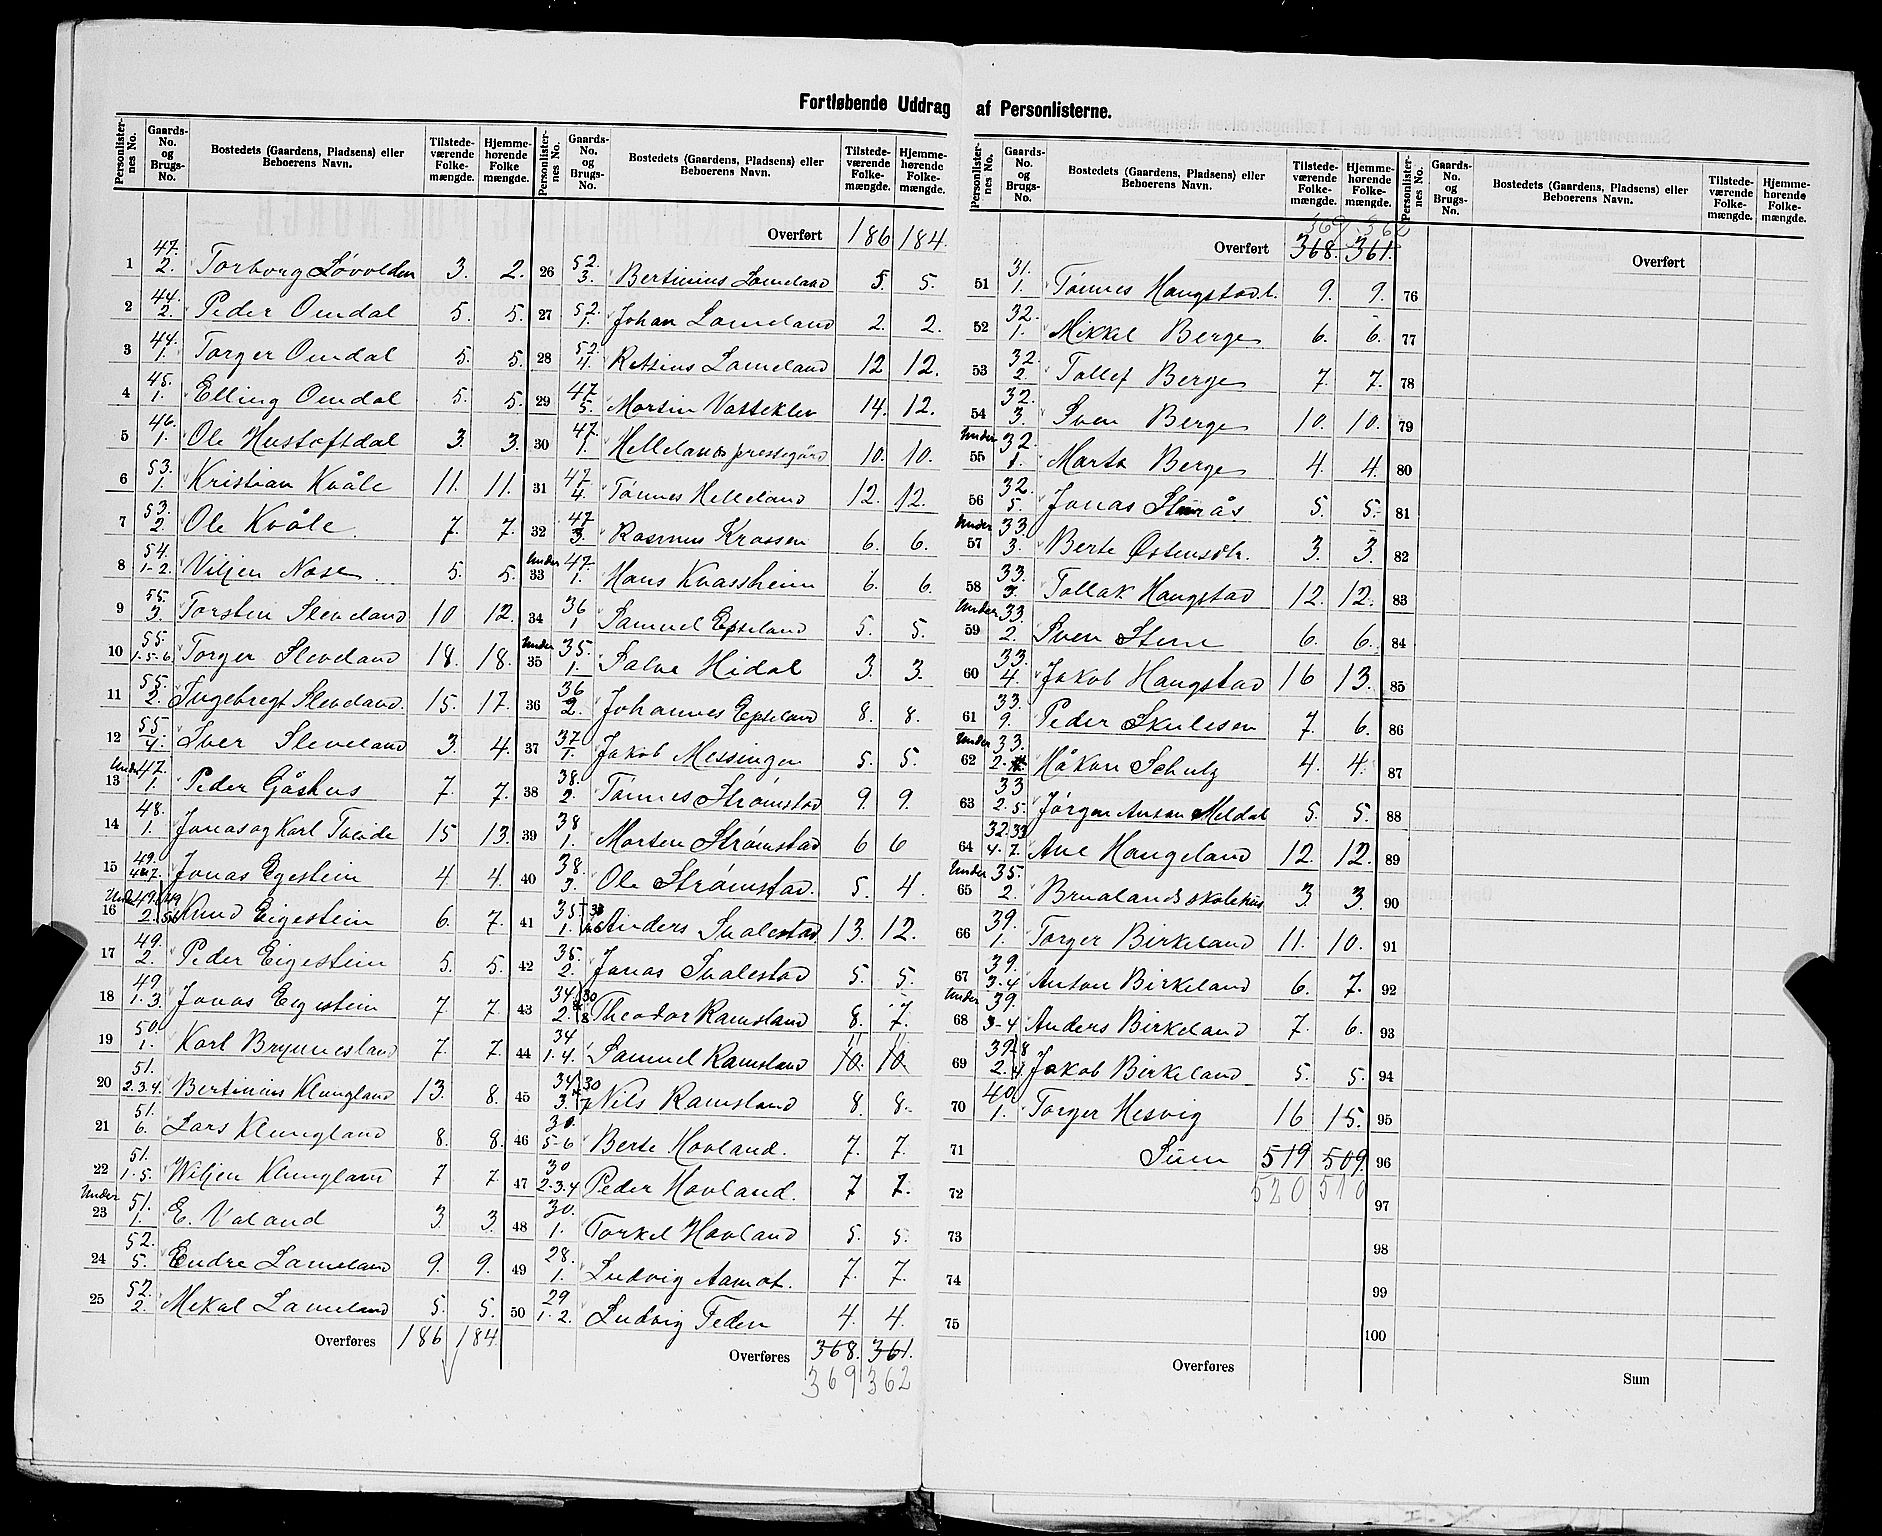 Fortløbende Uddrag af Personlisterne.
Personlister-nes No. | Gaards-No. og Brugs-No. | Bostedets (Gaardens, Pladsens) eller Beboerens Navn. | Tilstede-værende Folke-mængde. | Hjemme-hørende Folke-mængde.
1 47. 2. Torborg Løvolden 3. 2.
2 44. 2. Peder Omdal 5. 5.
3 44. 1. Torger Omdal 5. 5.
4 45. 1. Elling Omdal 5. 5.
5 46. 1. Ole Hustoftdal 3. 3.
6 53. 1. Kristian Kvåle 11. 11.
7 53. 2. Ole Kvåle. 7. 7.
8 54. 1-2. Viljen Nose 5. 5.
9 55. 3. Torsten Sleveland 10 12.
10 55. 1-5-6 Torger Sleveland 18. 18.
11 55. 2. Ingebregt Sleveland 15. 17.
12 55. 4. Iver Sleveland 3. 4.
Under 13 47. 1. Peder Gåshus 7. 7.
14 48. 1. Jonas og Karl Tveide 15 13.
15 49. Jonas Egestein 4 4.
Under 16 49. 2. Knud Eigestein 6. 7.
17 49. 2. Peder Eigestein 5. 5.
18 49. 1. 3. Jonas Eigestein 7. 7.
19 50. 1. Karl Brynnesland 7. 7.
20 51. 2. 3. 4. Bertinius Klungland 13. 8.
21 51. 6. Lars Klungland 8. 8.
22 51. 1. 5. Wiljen Klungland 7 7.
Under 23 51. 1. E. Valand 3. 3.
24 52. 5. Endre Lomeland 9. 9.
25 52. 2. Mikal Lomeland 5. 5.
Overføres 186 184.
Personlister-nes No. | Gaards-No. og Brugs-No. | Bostedets (Gaardens, Pladsens) eller Beboerens Navn. | Tilstede-værende Folke-mængde. | Hjemme-hørende Folke-mængde.
Overført 186 184.
26 52. 3. Bertinius Lomeland 5. 5.
27 52. 1. Johan Lomeland 2. 2.
28 52. 4. Retsius Lomeland 12 12.
29 47. 5. Martin Vasseklev 14. 12.
30 47. 1. Hellelands prestegård 10. 10.
31 47. 4. Tønnes Helleland 12. 12.
32 47 3. Rasmus Krossen 6. 6.
Under 33 47. 1. Hans Kvassheim 6. 6.
34 36 1 Samuel Epseland 5. 5.
Under 35 35. 1. Salve Hidal 3. 3.
36 36 2. Johannes Epseland 8. 8.
37 37 1. Jakob Messingen 5. 5.
38 38. 2. Tønnes Strømstad 9. 9.
39 38 1. Morten Strømstad 6 6
40 38. 3. Ole Strømstad. 5. 4.
41 35 1. Anders Svalestad 13. 12.
42 35. 2. Jonas Svalestad 5. 5.
43 34 2. 30 8 Theodor Ramsland 8. 7.
44 34 1. 4. Samuel Ramsland 10. 10. 11 11
45 34 3. 30 7 Nils Ramsland 8. 8.
46 30. 5-6 Berte Hovland. 7. 7.
47 30 2. 3. 4 Peder Hovland. 7 7.
48 30. 1. Torkel Hovland 5. 5.
49 28. 1. Ludvig Aamot. 7. 7.
50 29 1. 2. Ludvig Feden 4. 4.
Overføres 368. 361.
369 362
Personlister-nes No. | Gaards-No. og Brugs-No. | Bostedets (Gaardens, Pladsens) eller Beboerens Navn. | Tilstede-værende Folke-mængde. | Hjemme-hørende Folke-mængde.
369 362
Overført 368. 361.
51 31. 1. Tønnes Haugstad. 9. 9.
52 32. 1. Mikkel Berge 6. 6.
53 32. 2 Tollef Berge 7. 7.
54 32. 3. Sven Berge 10. 10.
Under 55 32. 1. Marta Berge 4. 4.
56 32. 5. Jonas Sturås 5. 5.
Under 57 33. 3. Berte Østensdtr. 3. 3.
58 33. 3. Tollak Haugstad 12. 12.
Under 59 33. 2. Sven Stene 6. 6.
60 33. 4. Jakob Haugstad 16 13.
61 33. 9. Peder Skulesen 7. 6.
Under 62 33. 2. Håkon Schulz 4. 4.
63 33 2. 5. Jørgen Anton Meldal 5. 5.
64 32. 33 4. 7. Ane Haugeland 12. 12.
Under 65 35. 2. Bruålands skolehus 3. 3.
66 39. 1. Torger Birkeland 11. 10.
67 39. 3-4 Anton Birkeland 6. 7.
Under 68 39. 3-4 Anders Birkeland 7 6.
69 39 2. Jakob Birkeland 5. 5.
70 40 1. Torger Hesvig 16 15.
71 Sum 519 509.
72 520 510
73
74
75
Overføres
Personlister-nes No. | Gaards-No. og Brugs-No. | Bostedets (Gaardens, Pladsens) eller Beboerens Navn. | Tilstede-værende Folke-mængde. | Hjemme-hørende Folke-mængde.
Overført
76
77
78
79
80
81
82
83
84
85
86
87
88
89
90
91
92
93
94
95
96
97
98
99
100
Sum